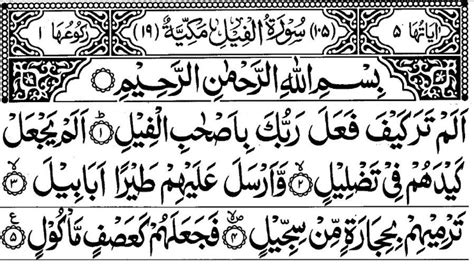 اٰیاتُهَا ٥ (١٠٥) سُوْرَةُ الْفِیْلِ مَكِّیَّةٌ (١٩) رُكُوْعُهَا ١
بِسْمِ اللّٰهِ الرَّحْمٰنِ الرَّحِیْمِ
اَلَمْ تَرَ كَیْفَ فَعَلَ رَبُّكَ بِاَصْحٰبِ الْفِیْلِ ١ اَلَمْ یَجْعَلْ
كَیْدَهُمْ فِیْ تَضْلِیْلٍ ٢ وَّاَرْسَلَ عَلَیْهِمْ طَیْرًا اَبَابِیْلَ ٣
تَرْمِیْهِمْ بِحِجَارَةٍ مِّنْ سِجِّیْلٍ ٤ فَجَعَلَهُمْ كَعَصْفٍ مَّاْكُوْلٍ ٥